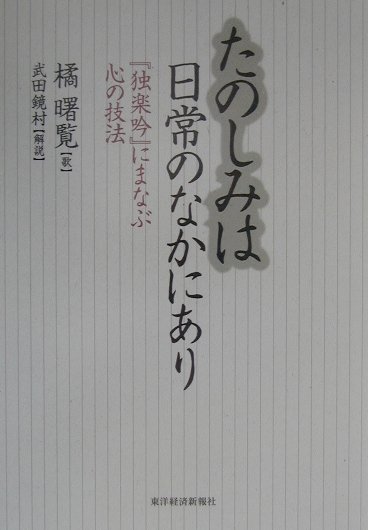 たのしみは
日常のなかにあり
『独楽吟』にまなぶ
心の技法
橘曙覧【歌】
武田鏡村【解説】
東洋経済新報社